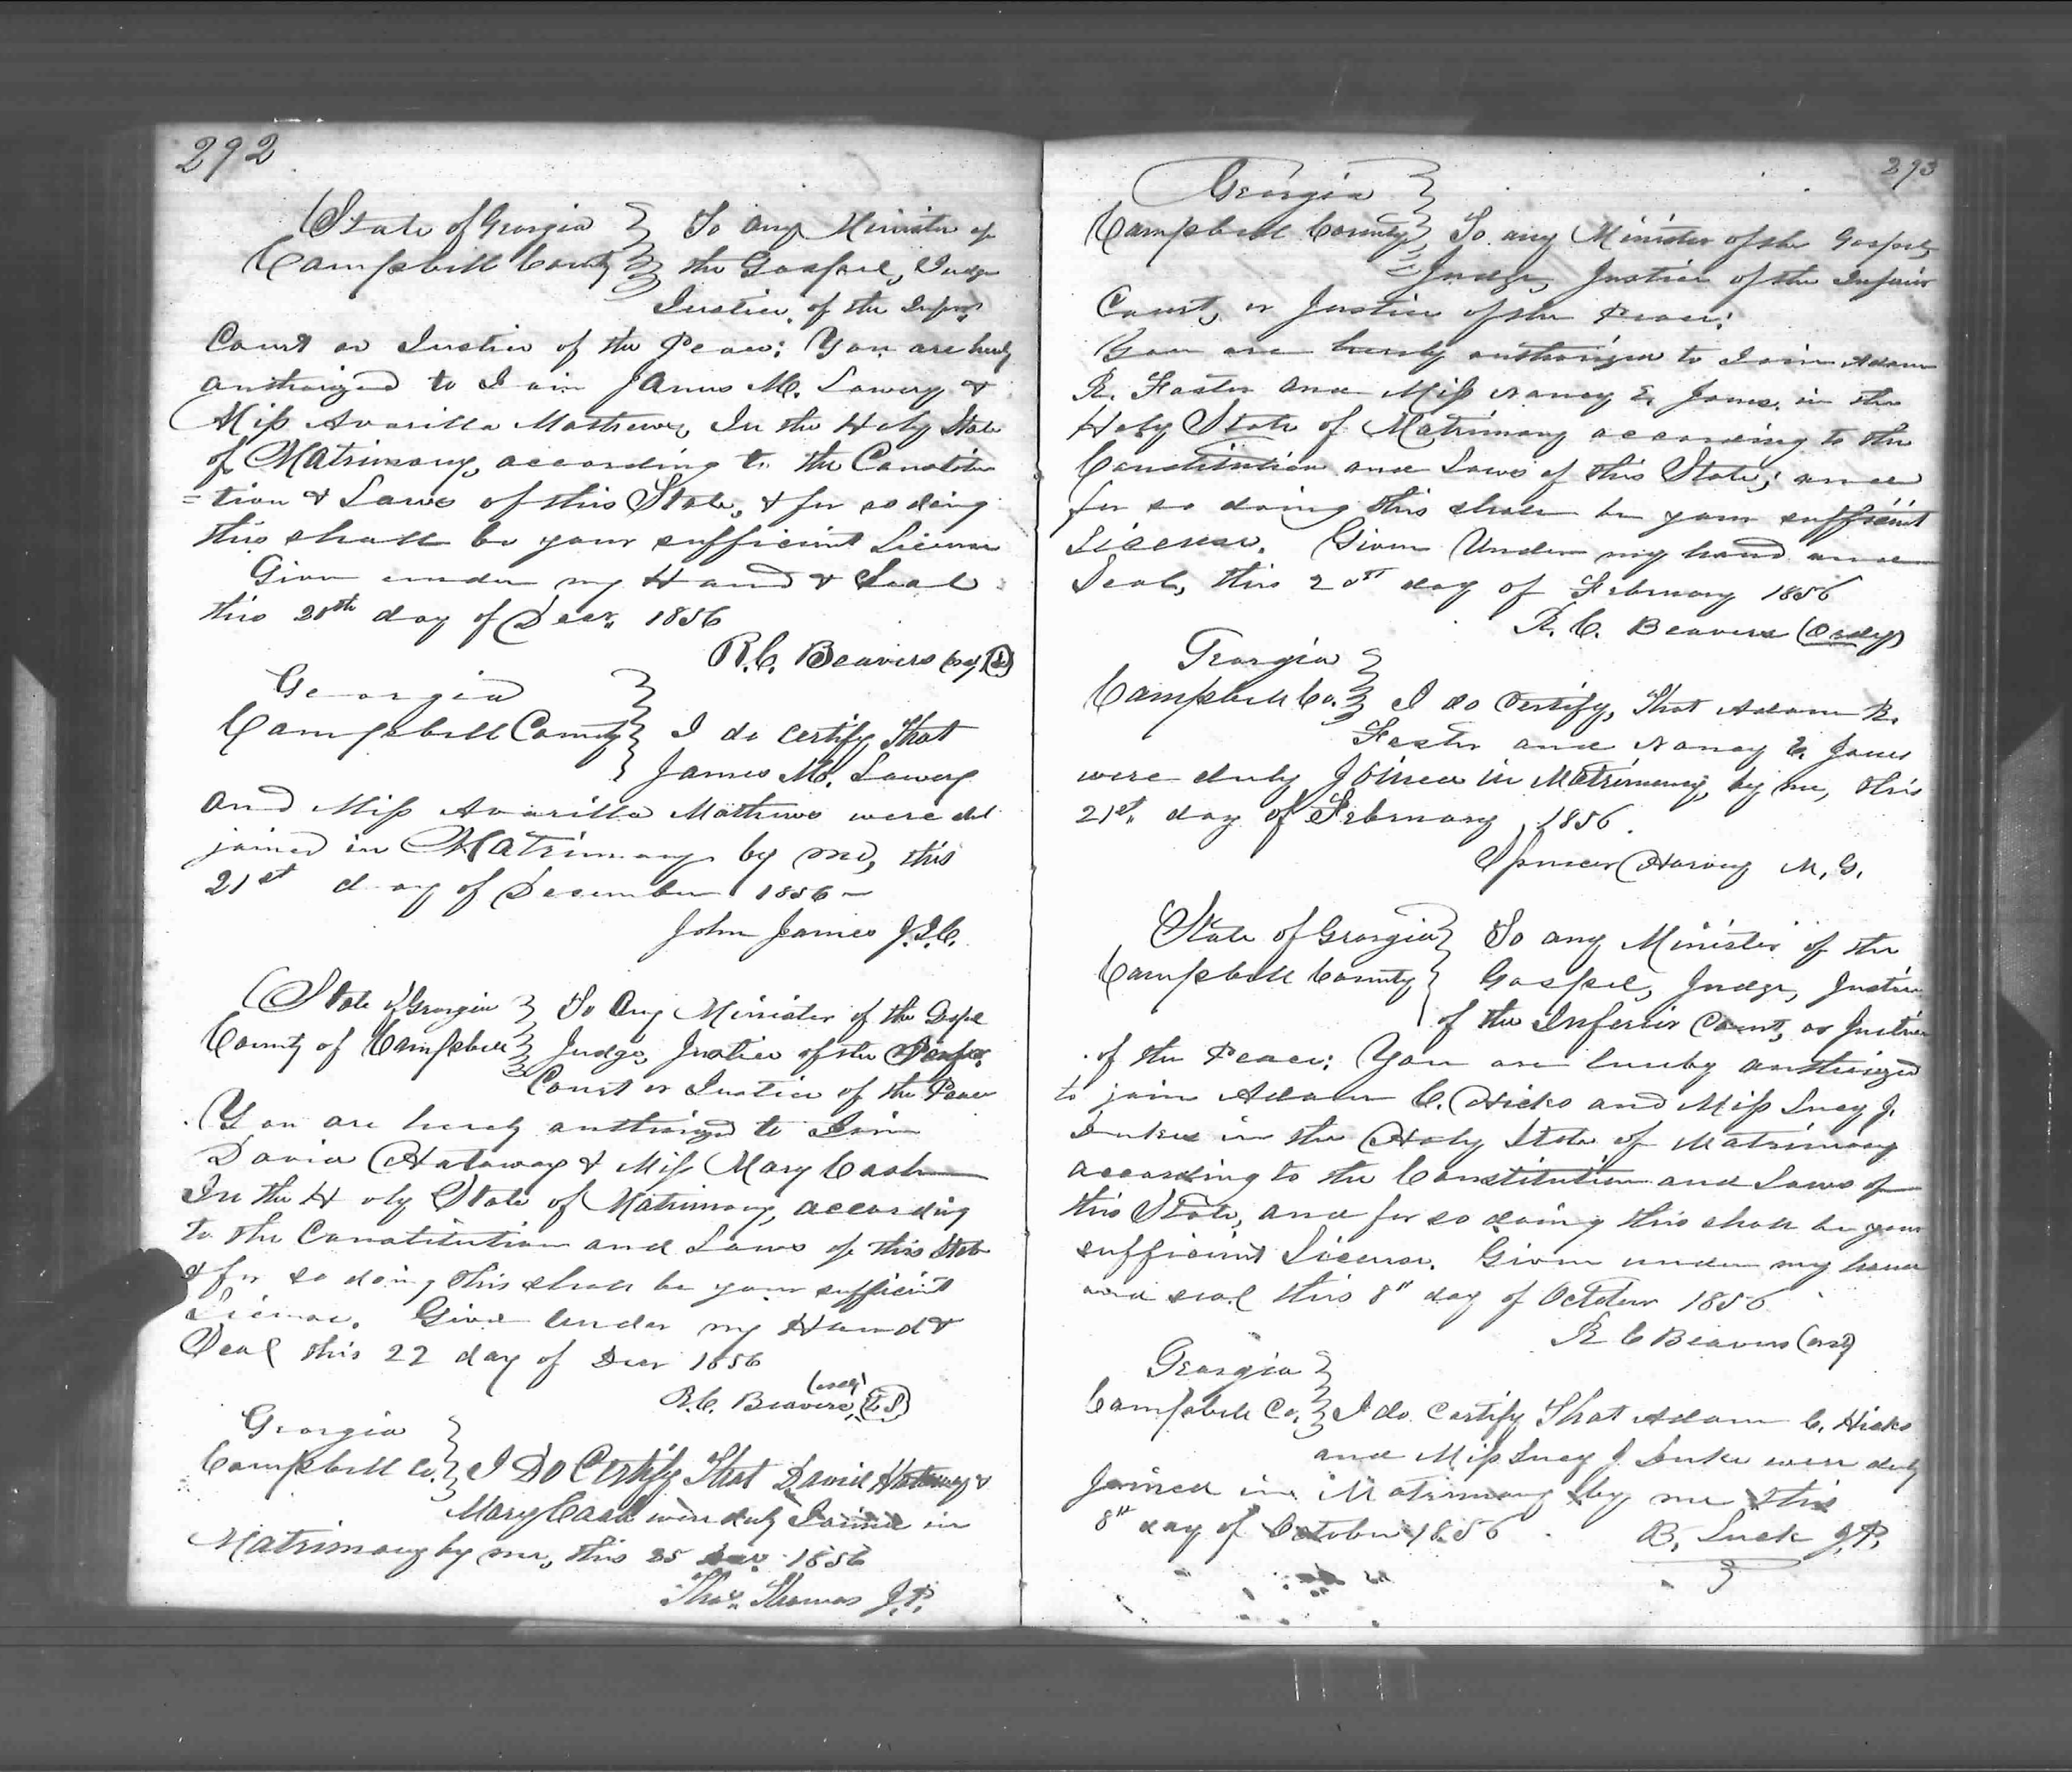 292
State of Georgia } To any Minister of
Campbell County } the Gospel, Judge
Justice, of the Infr.
Court or Justice of the Peace: You are herby
authorized to Join James M. Lowery &
Miss Avarilla Mathews, In the Holy State
of Matrimony, according to the Constitu
=tion & Laws of this State, & for so doing
this shall be your sufficient License
Given under my Hand & Seal
this 20th day of Decr. 1856
R. C. Beavers
Georgia }
Campbell County } I do certify That
James M. Lowery
and Miss Avarilla Mathews were
joined in Matrimony by me, this
21st day of December 1856
John James J.I.C.
State of Georgia } To Any Minister of the Gospel
County of Campbell } Judge, Justice of the
Court or Justice of the Peace
You are hereby authorized to Join
David Hataway & Miss Mary Cash
In the Holy State of Matrimony, according
to the Constitution and Laws of this State
& for so doing this shall be your sufficient
License. Given Under my Hand &
Seal this 22 day of Decr 1856
(ordy)
R. C. Beavers, (L S)
Georgia }
Campbell Co. } I Do Certify That David Hataway &
Mary Cash were duly Joined in
Matrimony by me, this 25 Decr 1856
Thos. Thomas J.P.
293
Georgia }
Campbell County } To any Minister of the Gospel,
Judge, Justice of the Inferior
Court, or Justice of the Peace:
You are hereby authorized to Join Adam
R. Foster and Miss Nancy E. Jones, in the
Holy State of Matrimony according to the
Constitution and Laws of this State; and
for so doing this shall be your sufficient
License. Given Under my hand and
Seal, this 20th day of February 1856
R. C. Beavers (Ordy)
Georgia }
Campbell Co. } I do Certify, That Adam R.
Foster and Nancy E. Jones
were duly Joined in Matrimony, by me, this
21st. day of February, 1856.
Spencer Harvey M. G.
State of Georgia } To any Minister of the
Campbell County } Gospel, Judge, Justice
of the Inferior Court, or Justice
of the Peace: You are hereby authorized
to join Adam C. Hicks and Miss Lucy J.
Duke in the Holy State of Matrimony
according to the Constitution and Laws of
this State, and for so doing this shall be your
sufficient License. Given under my hand
and seal this 8th day of October 1856
R C Beavers (ord)
Georgia }
Campbell Co. } I do Certify That Adam C. Hicks
and Miss Lucy J. Duke were duly
Joined in Matrimony by me this
8th day of October 1856. B. Luck J.P.